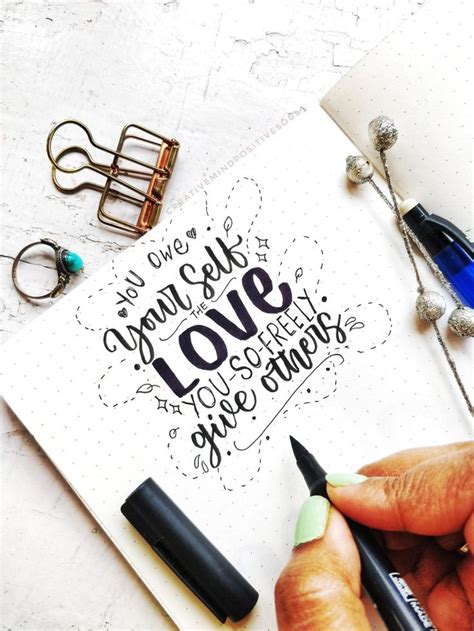 CREATIVEMINDPOSITIVESOUL
YOU OWE
YOUR SELF
THE
LOVE
YOU-SO-FREELY
give others